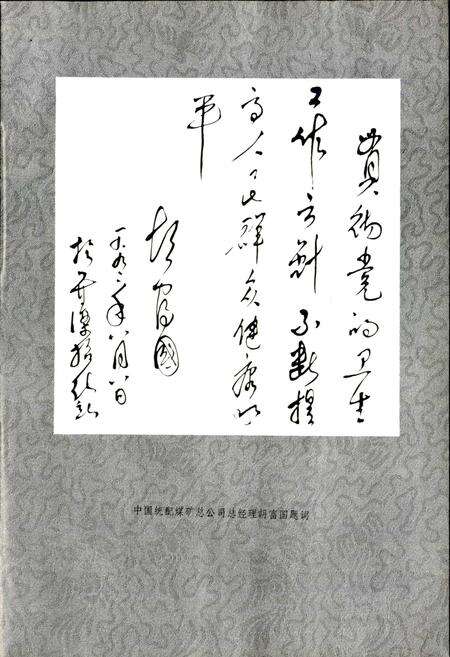 贯彻党的卫生
工作方针不断提
高人民群众健康水
平
胡富国
一九九二年八月八日
于开滦
中国统配煤矿总公司总经理胡富国题词